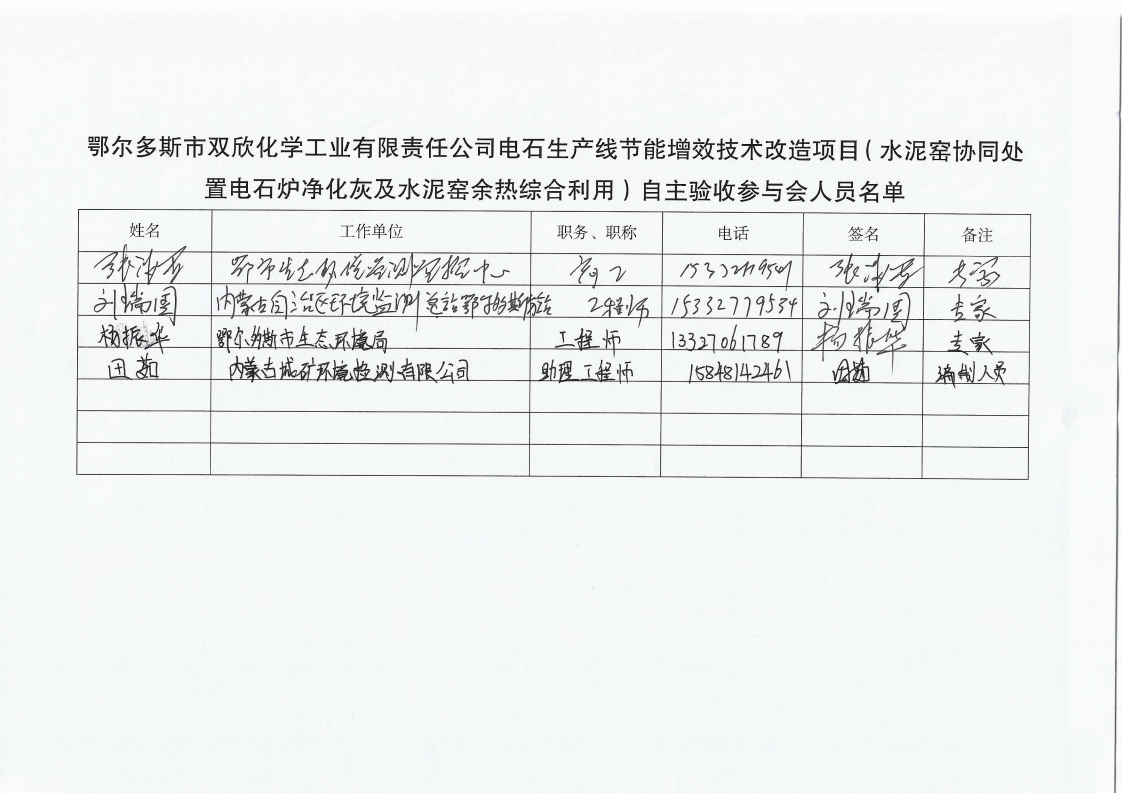 鄂尔多斯市双欣化学工业有限责任公司电石生产线节能增效技术改造项目（水泥窑协同处
置电石炉净化灰及水泥窑余热综合利用）自主验收参与会人员名单
姓名 工作单位 职务、职称 电话 签名 备注
鄂市生态环境监测实验中心 高工 专家
刘瑞国 内蒙古自治区环境监测总站鄂尔多斯分站 工程师 15332779534 刘瑞国 专家
杨振华 鄂尔多斯市生态环境局 工程师 13327061789 杨振华 专家
田茹 内蒙古城矿环境检测有限公司 助理工程师 15848142461 田茹 编制人员